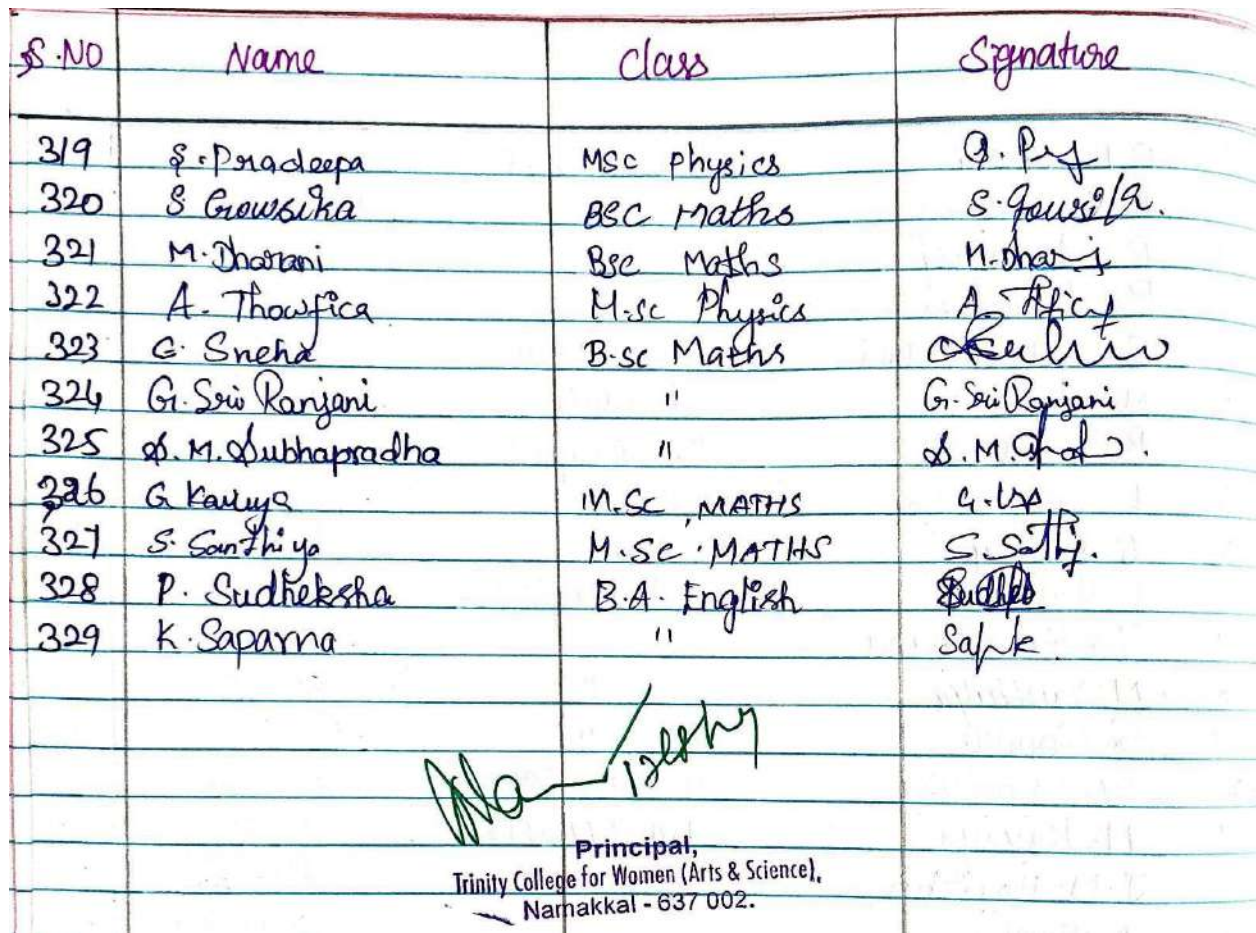 S.NO Name Class Signature
319 S. Pradeepa MSC Physics
320 S Gowsika BSC Maths
321 M. Dharani Bsc Maths
322 A. Thowfica M.sc Physics
323 G. Sneha B.sc Maths
324 G. Sri Ranjani " G. Sri Ranjani
325 S. M. Subhapradha " S. M.
326 G Kaviya M.SC MATHS
327 S. Santhiya M.SC. MATHS
328 P. Sudheksha B.A. English
329 K. Saparna "
Principal,
Trinity College for Women (Arts & Science),
Namakkal - 637 002.